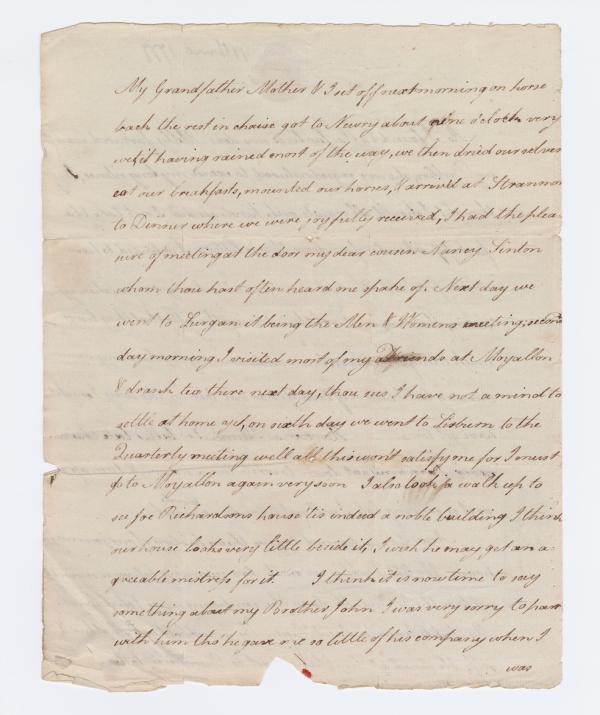 My Grandfather Mother & I set off next morning on horse
back the rest in chaise got to Newry about nine o'clock very
wet it having rained most of the way, we then dried ourselves
eat our breakfasts, mounted our horses, & arriv'd at Stranmor
to Dinner where we were joyfully received, I had the plea
sure of meeting at the door my dear cousin Nancy Sinton
whom thou hast often heard me spake of. Next day we
went to Lurgan it being the Men & Womens meeting, second
day morning I visited most of my Friends at Moyallon
& drank tea there next day, thou sees I have not a mind to
settle at home yet, on sixth day we went to Lisburn to the
Quarterly meeting well all this wont satisfy me for I must
go to Moyallon again very soon I also took a walk up to
see Joe Richardsons house tis indeed a noble building I think
our house looks very little beside it, I wish he may get an a
greeable mistress for it. I think it is now time to say
something about my Brother John I was very sorry to part
with him tho' he gave me so little of his company when I
was